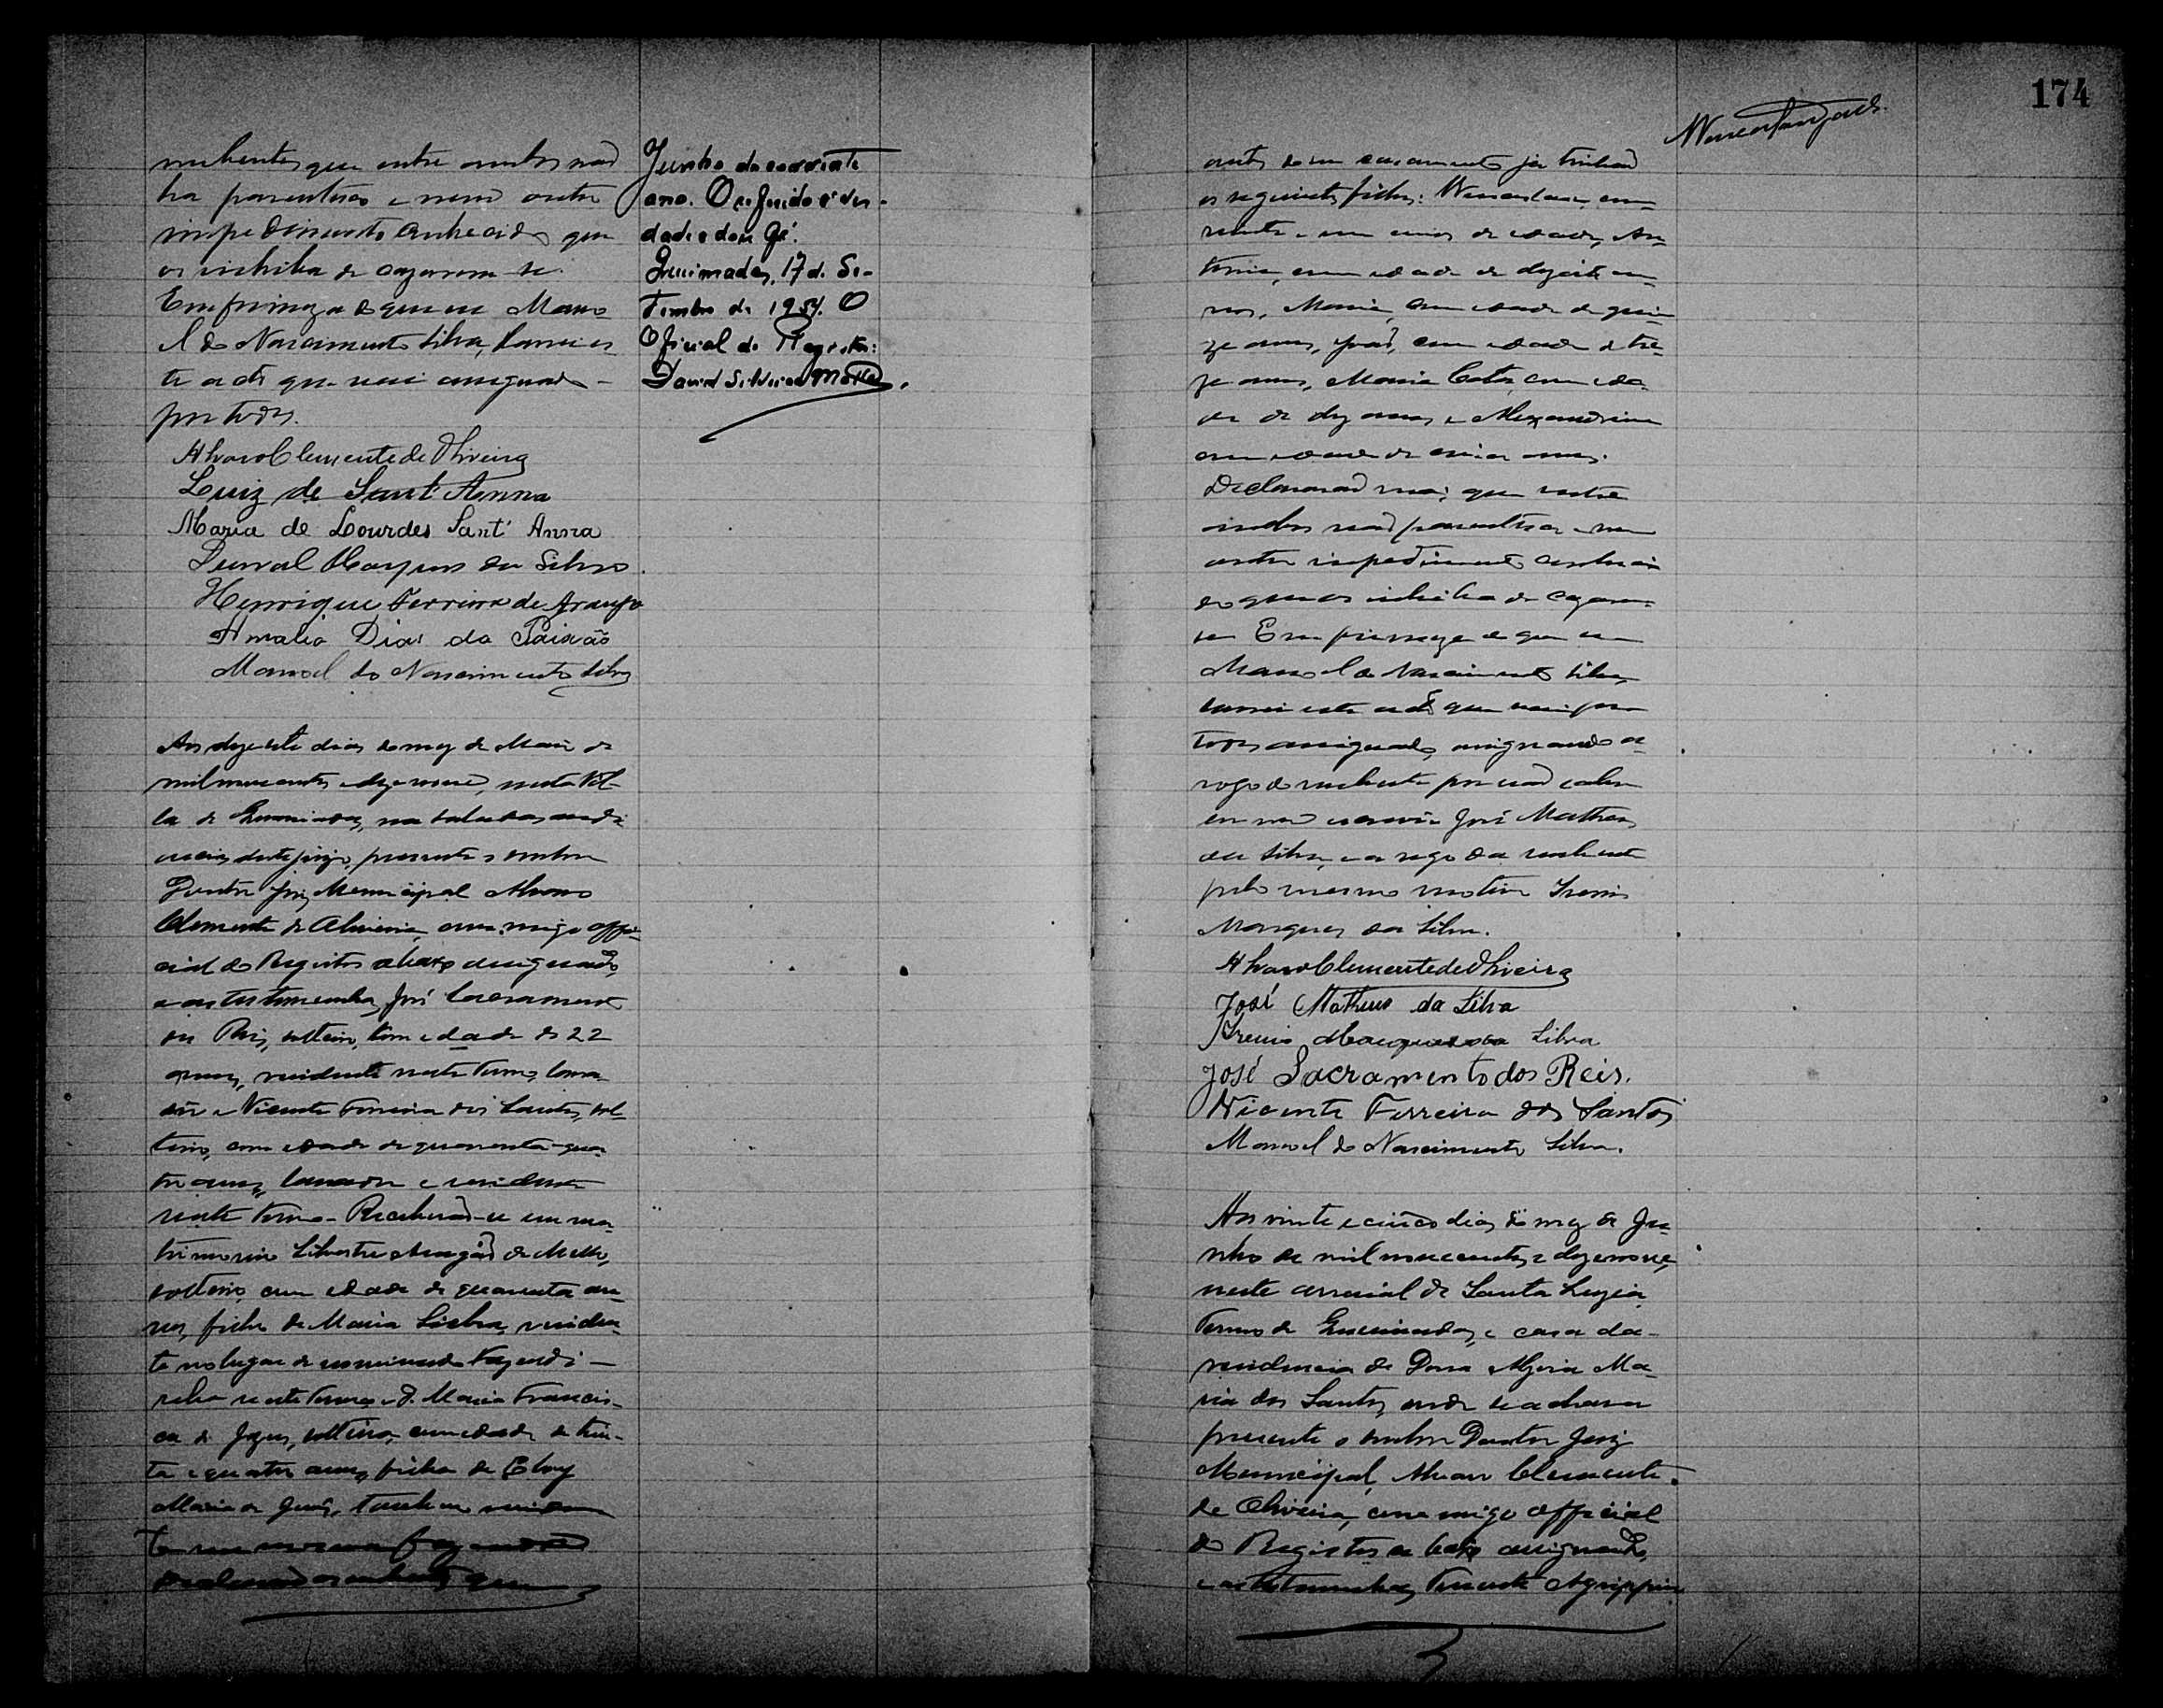 nubentes que entre ambos não
ha parentesco e nem outro
impedimento conhecido que
os inhiba de cazarem-se.
Em firmeza do que eu Mano-
el do Nascimento Silva, lavrei es-
te acto que vai assignado
por todos.
Alvaro Clemente de Oliveira
Luiz de Sant'Anna
Maria de Lourdes Sant'Anna
Durval Marques da Silva
Henrique Ferreira de Araujo
Amalia Dias da Paixão
Manoel do Nascimento Silva
Aos dezesete dias do mez de Maio de
mil novecentos e dezenove, nesta Vil-
la de Queimadas, na sala das audi-
encias deste juizo, presente o senhor
Doutor Juiz Municipal Alvaro
Clemente de Oliveira, commigo offi-
cial do Registro abaixo assignado,
e as testemunhas José Sacramento
dos Reis, solteiro, com edade de 22
annos, residente neste Termo, lavra-
dor e Vicente Ferreira dos Santos, sol-
teiro, com edade de quarenta e qua-
tro annos, lavrador e residente
neste Termo. Receberão-se em ma-
trimonio Silvestre Aragão de Mello,
solteiro com edade de quarenta an-
nos, filho de Maria residen-
te no lugar denominado Fazendi-
nha neste Termo e D. Maria Francis-
ca de Jezus, solteira, com edade de trin-
ta e quatro annos, filha de Eloy
Maria de Jesus, tambem residen-
te na mesma fazenda
declararão os nubentes que
Junho do corrente
ano. O referido é ver-
dade e dou fé.
Queimadas, 17 de Se-
tembro de 1954. O
Oficial do Registro:
David Silveira Motta.
174
antes do seu casamento ja tinhão
os seguintes filhos: Wenceslau, com
vinte e um annos de edade, An-
tonio, com edade de dezoito an-
nos, Maria, com edade de quin-
ze annos, João, com edade de tre-
ze annos, Maria com eda-
de de dez annos e Alexandrina
com edade de cinco annos.
Declararão mais que entre
ambos não parentesco e nem
outro impedimento conheci-
do que os inhiba de cazarem-
se. Em firmeza do que eu
Manoel do Nascimento Silva,
lavrei este acto que vai por
todos assignado, assignando a
rogo do nubente por não saber
ler nem escrever José Matheus
da Silva, e a rogo da nubente
pelo mesmo motivo Irenio
Marques da Silva.
Alvaro Clemente de Oliveira
José Matheus da Silva
Irenio Marques da Silva
José Sacramento dos Reis.
Vicente Ferreira dos Santos
Manoel do Nascimento Silva.
Aos vinte e cinco dias do mez de Ju-
nho de mil novecentos e dezenove,
neste arraial de Santa Luzia,
Termo de Queimadas, e casa da
residencia de Dona Ma-
ria dos Santos, onde se achava
presente o senhor Doutor Juiz
Municipal, Alvaro Clemente
de Oliveira, commigo official
do Registro abaixo assignado,
e as testemunhas Tenente Agrippino